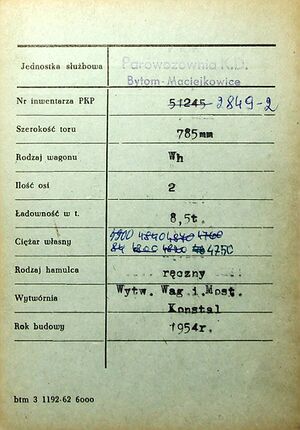 Jednostka służbowa Parowozownia K.D.
Bytom-Maciejkowice
Nr inwentarza PKP 51245 2849-2
Szerokość toru 785mm
Rodzaj wagonu Wh
Ilość osi 2
Ładowność w t. 8,5t.
Ciężar własny 4900 4840 4840 4760
4800 4820 4750
Rodzaj hamulca ręczny
Wytwórnia Wytw. Wag.i.Most.
Konstal
Rok budowy 1954r.
btm 3 1192-62 6000